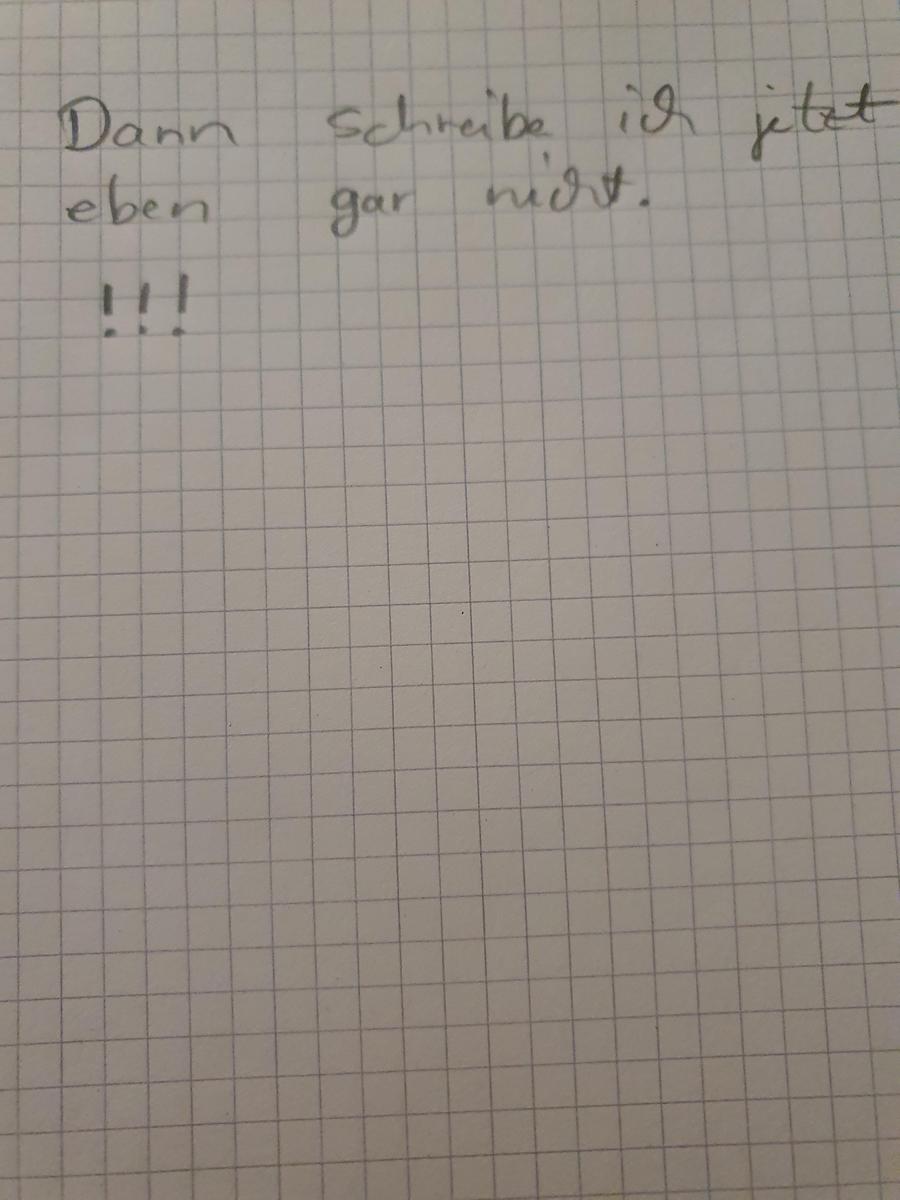 Dann schreibe ich jetzt
eben gar nicht.
!!!